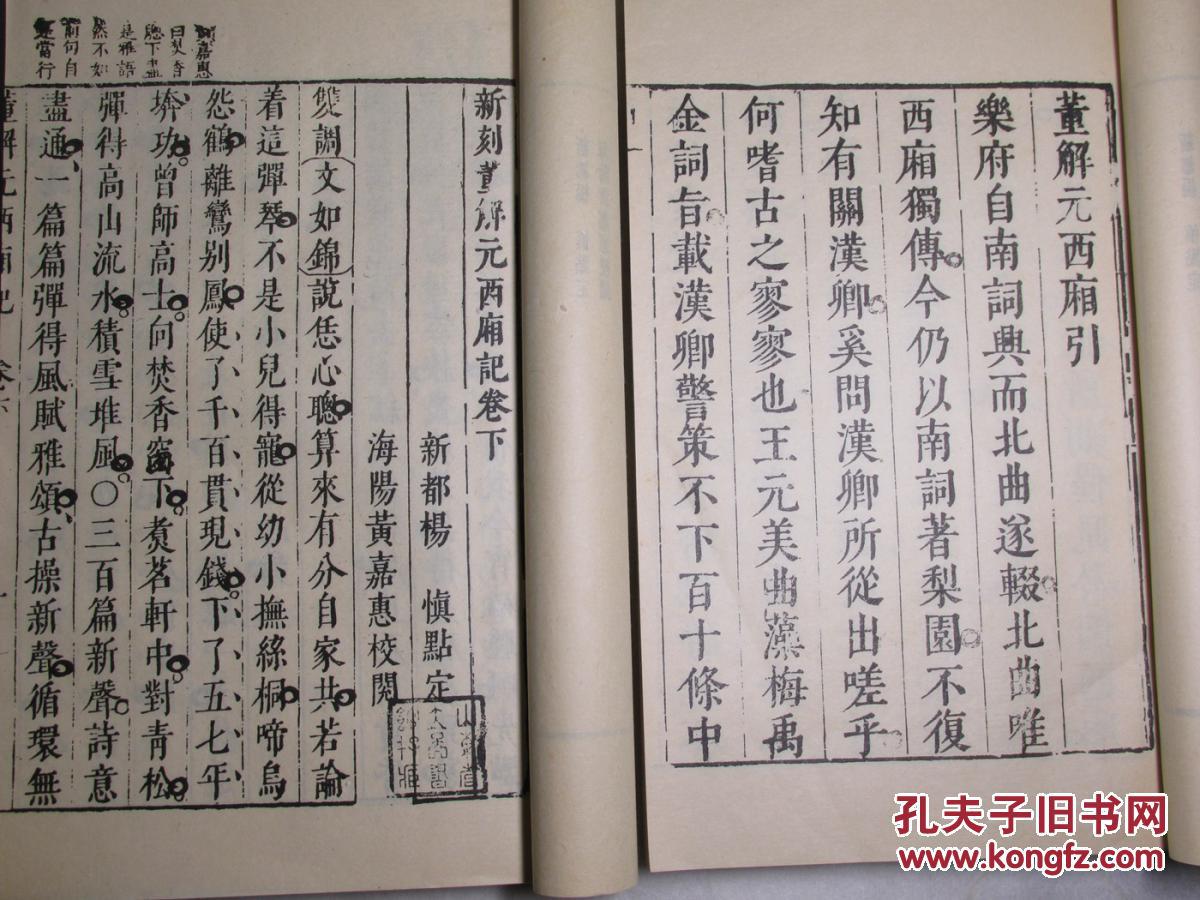 董解元西廂引
樂府自南詞興而北曲遂輟北曲唯
西廂獨傳今仍以南詞著梨園不復
知有關漢卿奚問漢卿所從出嗟乎
何嗜古之寥寥也王元美曲藻梅禹
金詞旨載漢卿警策不下百十條中
嘉惠
曰焚香
聽下盡
是雅語
然不如
前句自
是當行
新刻董解元西廂記卷下
新都楊 慎點定
海陽黃嘉惠校閱
雙調文如錦說恁心聰算來有分自家共若論
着這彈琴不是小兒得寵從幼小撫絲桐啼烏
怨鶴離鸞別鳳使了千百貫現錢下了五七年
埲功曾師高士向焚香窗下煑茗軒中對青松
彈得高山流水積雪堆風○三百篇新聲詩意
盡通一篇篇彈得風賦雅頌古操新聲循環無
董解元西廂記
孔夫子旧书网
www.kongfz.com